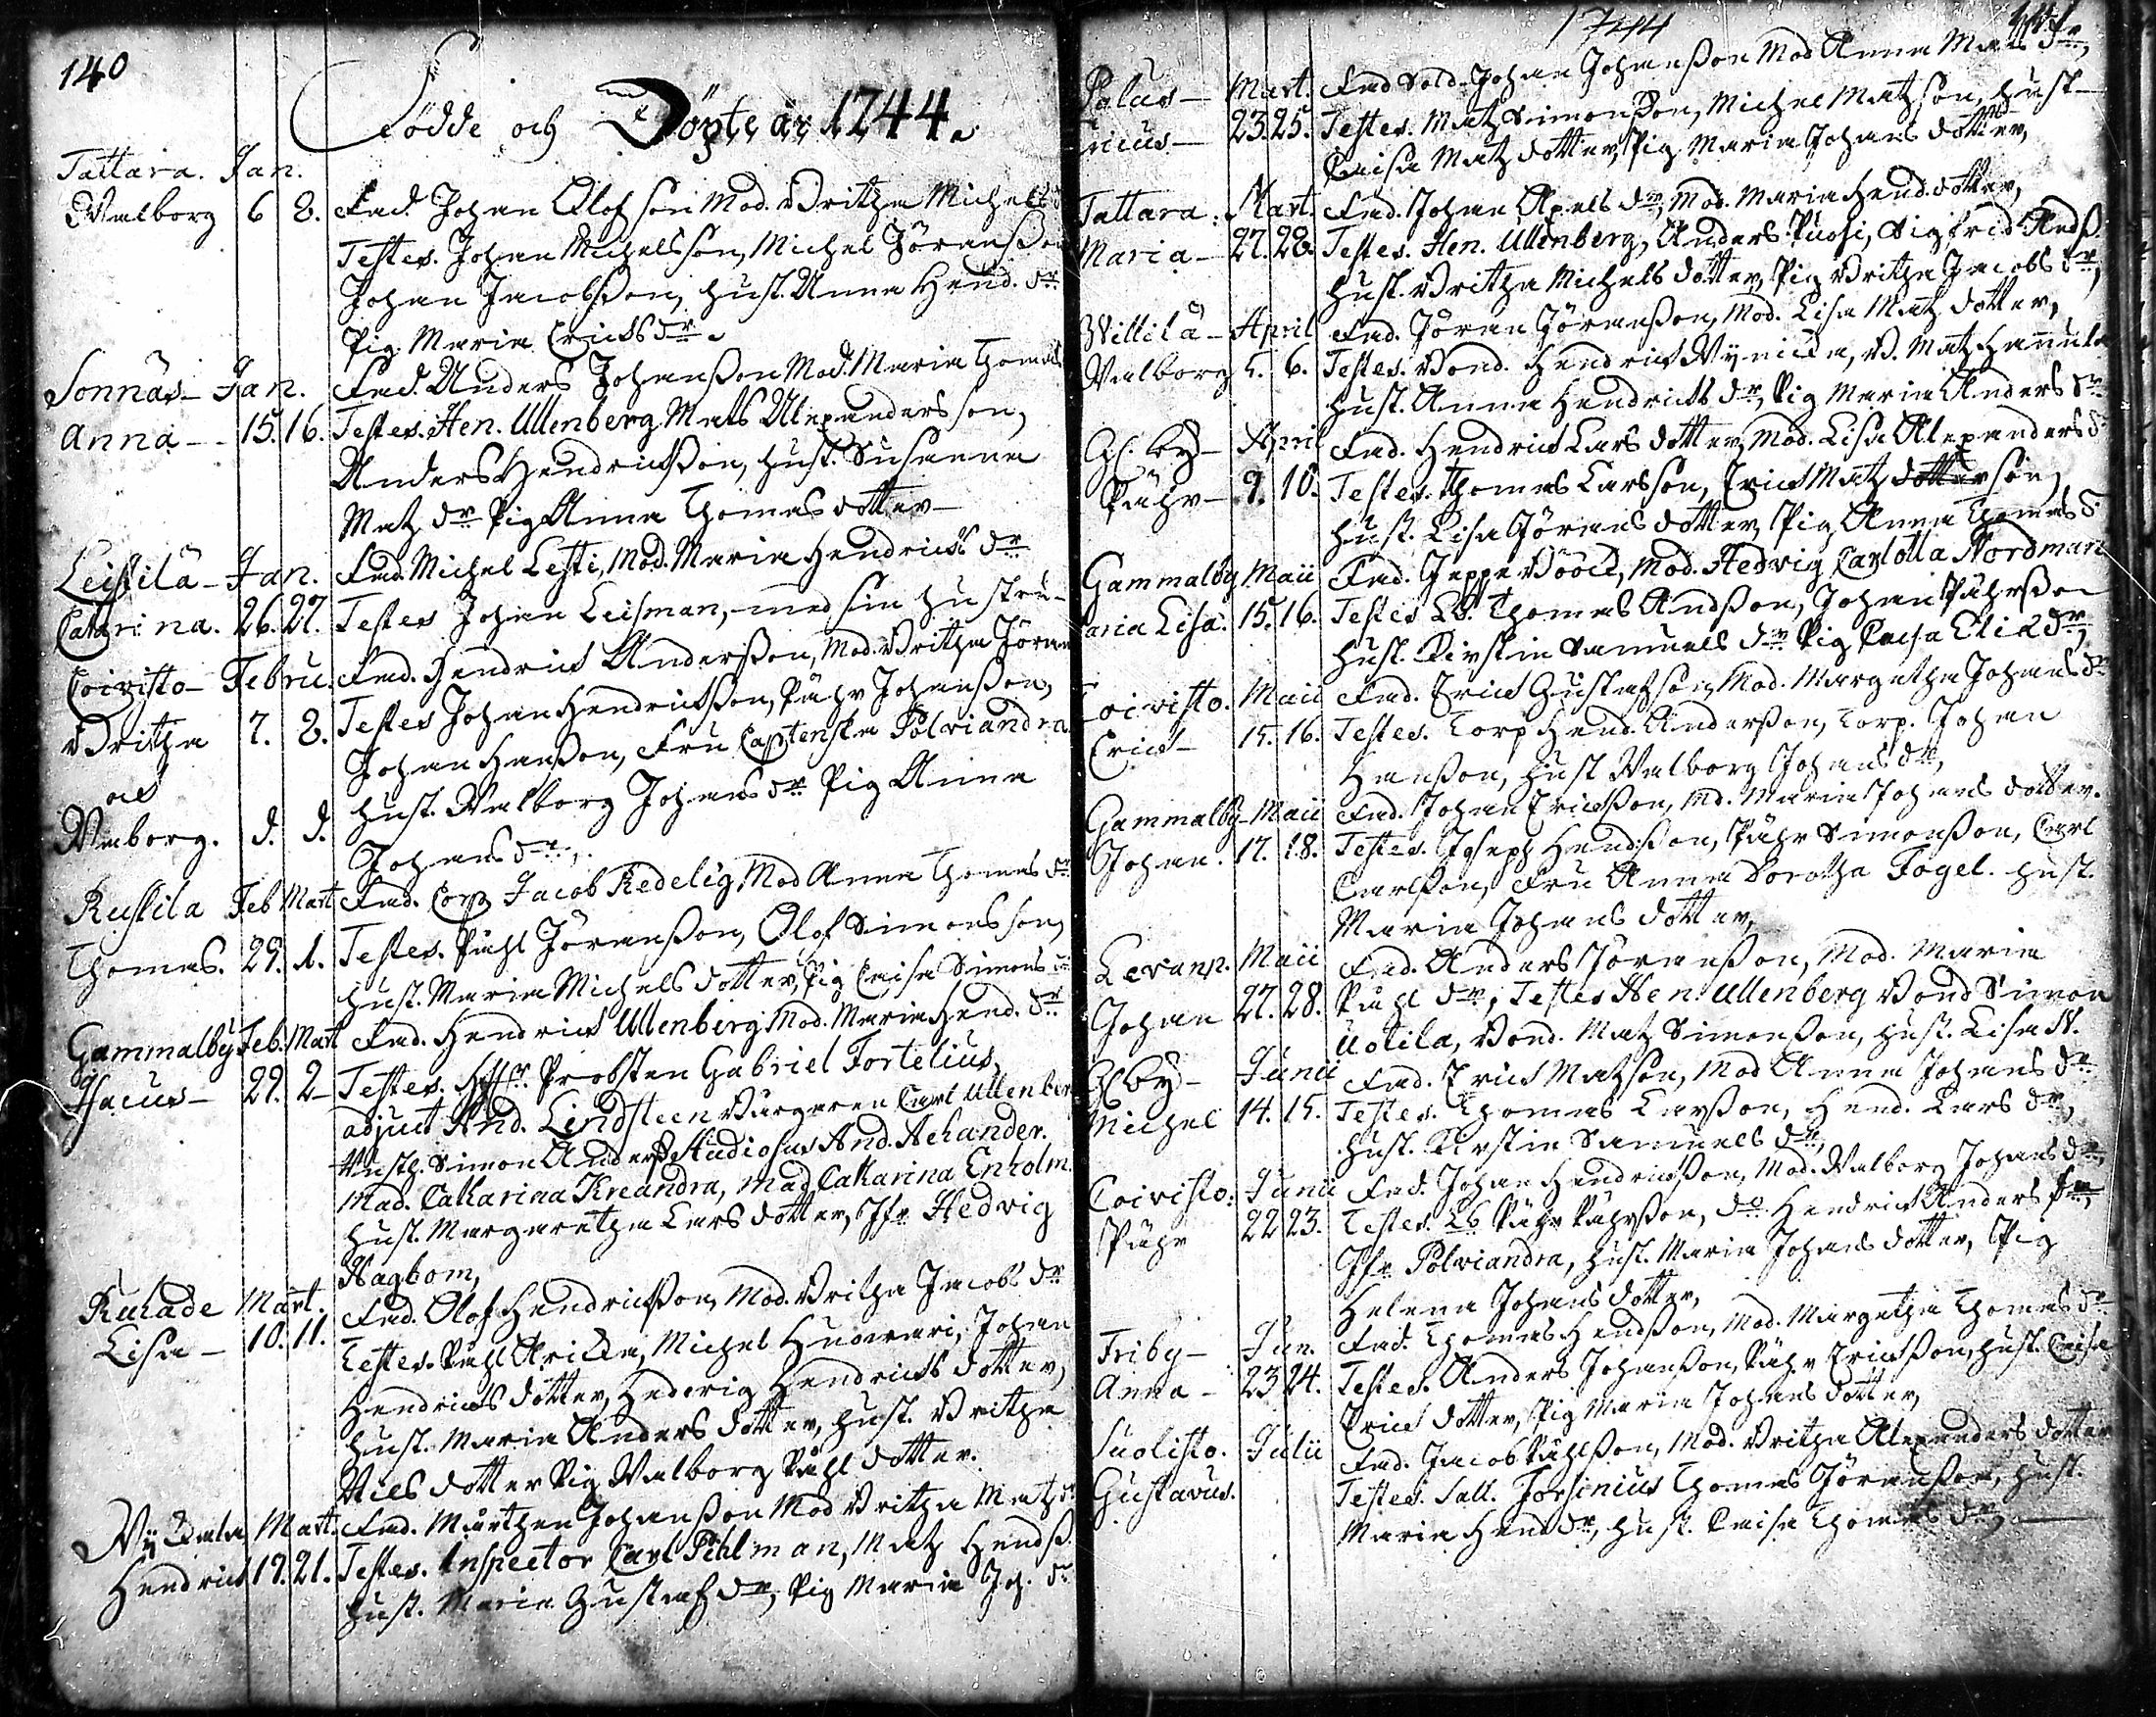 140
Födde och Döpte år 1744.
Tattara. Jan.
Walborg 6 8. Fad. Johan Olofson Mod. Britha Michels
Testes. Johan Michelsson, Michel Jöransson
Johan Jacobsson, hust. Anna Hend. dr
Pig. Maria Ericks dr.
Sonnäs - Jan. Fad. Anders Johansson Mod. Maria Thomas
Anna - 15. 16. Testes. Hen. Ullenberg Mats Alexandersson,
Anders Hendricksson, hust. Susanna
Matz dr Pig Anna Thomas dotter
Leistilä - Jan. Fad. Michel Lesti, Mod. Maria Hendricks dr
Catharina. 26. 27. Testes Johan Leisman, med sin hustru
Coivisto - Febru. Fad. Hendrick Andersson, Mod. Britha Jöran
Britha 7. 8. Testes Johan Hendricksson, Påhr Johansson,
Johan Hansson, Fru Captenska Polviandra
och hust. Walborg Johans dr Pig Anna
Walborg. d. d. Johans dr,
Rustila Feb Mart Fad. Corp Jacob Redelig Mod Anna Thomas dr
Thomas. 29. 1. Testes. Påhl Jöransson, Olof Simonsson,
hust. Maria Michels dotter, Pig Caisa Simons
Gammalby Feb. Mart Fad. Hendrick Ullenberg Mod. Maria Hend. dr
Isacus - 29. 2 - Testes. Probsten Gabriel Fortelius,
adjunct And. Lindsteen Borgaren Carl Ullenber
Simon Anders Studiosus And. Achander.
Mad. Catharina Kreandra, Mad Catharina Enholm
hust. Margaretha Lars dotter, Jfr Hedvig
Hagbom,
Kulade Mart. Fad. Olof Hendricksson, Mod. Britha Jacobs dr
Lisa - 10. 11. Testes. Påhl Michel Huovari, Johan
Hendricks dotter, Hedevig Hendricks dotter,
hust. Maria Anders dotter, hust. Britha
Nils dotter Pig Walborg Påhl dotter.
Mart. Fad. Mårthen Johansson Mod Britha Matz dr
Hendrick 19. 21. Testes. Inspector Carl Pihlman, Matz Hendss.
hust. Maria Gustaf dr, Pig Maria Joh. dr
1744
Mart. Fad Sold. Johan Johansson Mod Anna Mats dr,
23. 25. Testes. Matz Simonsson, Michel Matzson, hust
Caisa Matz dotter, Pig Maria Johans dotter,
Tattara. Mart. Fad. Johan Axels dr, Mod. Maria Hend. dotter,
Maria - 27. 28. Testes. Hen. Ullenberg, Anders Sigfrid Andss
hust. Britha Michels dotter, Pig Britha Jacobs dr,
Willilä - April Fad. Jöran Jöransson, Mod. Lisa Matz dotter,
Walborg 5. 6. Testes. Bond. Hendrick B. Matz Hannula
hust. Anna Hendricks dr, Pig Maria Anders dr
by - April Fad. Hendrick Lars dotter, Mod. Lisa Alexanders d
Påhr - 9. 10. Testes. Thomas Larsson, Erick Matz dotterson,
hust. Lisa Jörans dotter, Pig Anna Thomas d
Gammalby Maii Fad. Jeppe Böök, Mod. Hedvig Carlotta Nordman
aria Lisa. 15. 16. Testes Lb. Thomas Andsson, Johan Påhrsson
hust. Kirstin Samuels dr Pig Caisa dr,
Coivisto. Maii Fad. Erick Gustafson, Mod. Margetha Johans dr
Erick - 15. 16. Testes. Torp Hend. Andersson, Torp. Johan
Hansson, hust Walborg Johans dr,
Gammalby - Maii Fad. Johan Ericksson, Md. Maria Johans dotter.
Johan. 17. 18. Testes. Joseph Hendsson, Påhr Simonsson, Carl
Carlsson, Fru Anna Dorotha Fogel. hust.
Maria Johans dotter,
Levanp. Maii Fad. Anders Jöransson, Mod. Maria
Johan 27. 28. Påhl dr, Testes Hen. Ullenberg Bond Simon
Uotila, Bond. Matz Simonsson, hust. Lisa N.
by - Junii Fad. Erick Matzson, Mod Anna Johans dr
Michel 14. 15. Testes. Thomas Larsson, Hend. Lars dr,
hust. Kirstin Samuels dr,
Coivisto. Junii Fad. Johan Hendricksson, Mod. Walborg Johans dr,
Påhr 22 23. Testes. Lb Påhr Påhrsson, do Hendrick Anders
Jfr Polviandra, hust. Maria Johans dotter, Pig
Helena Johans dotter,
Friby - Jun. Fad. Thomas Hendsson, Mod. Margetha Thomas dr
Anna - 23 24. Testes. Anders Johansson, Påhr Ericksson, hust. Caisa
Erick dotter, Pig Maria Johans dotter,
Suolisto. Julii Fad. Jacob Påhlsson, Mod. Britha Alexanders dotter
Gustavus. Testes. Sall. Forsenius Thomas Jöransson, hust.
Maria Hen dr, hust. Caisa Thomas dr,